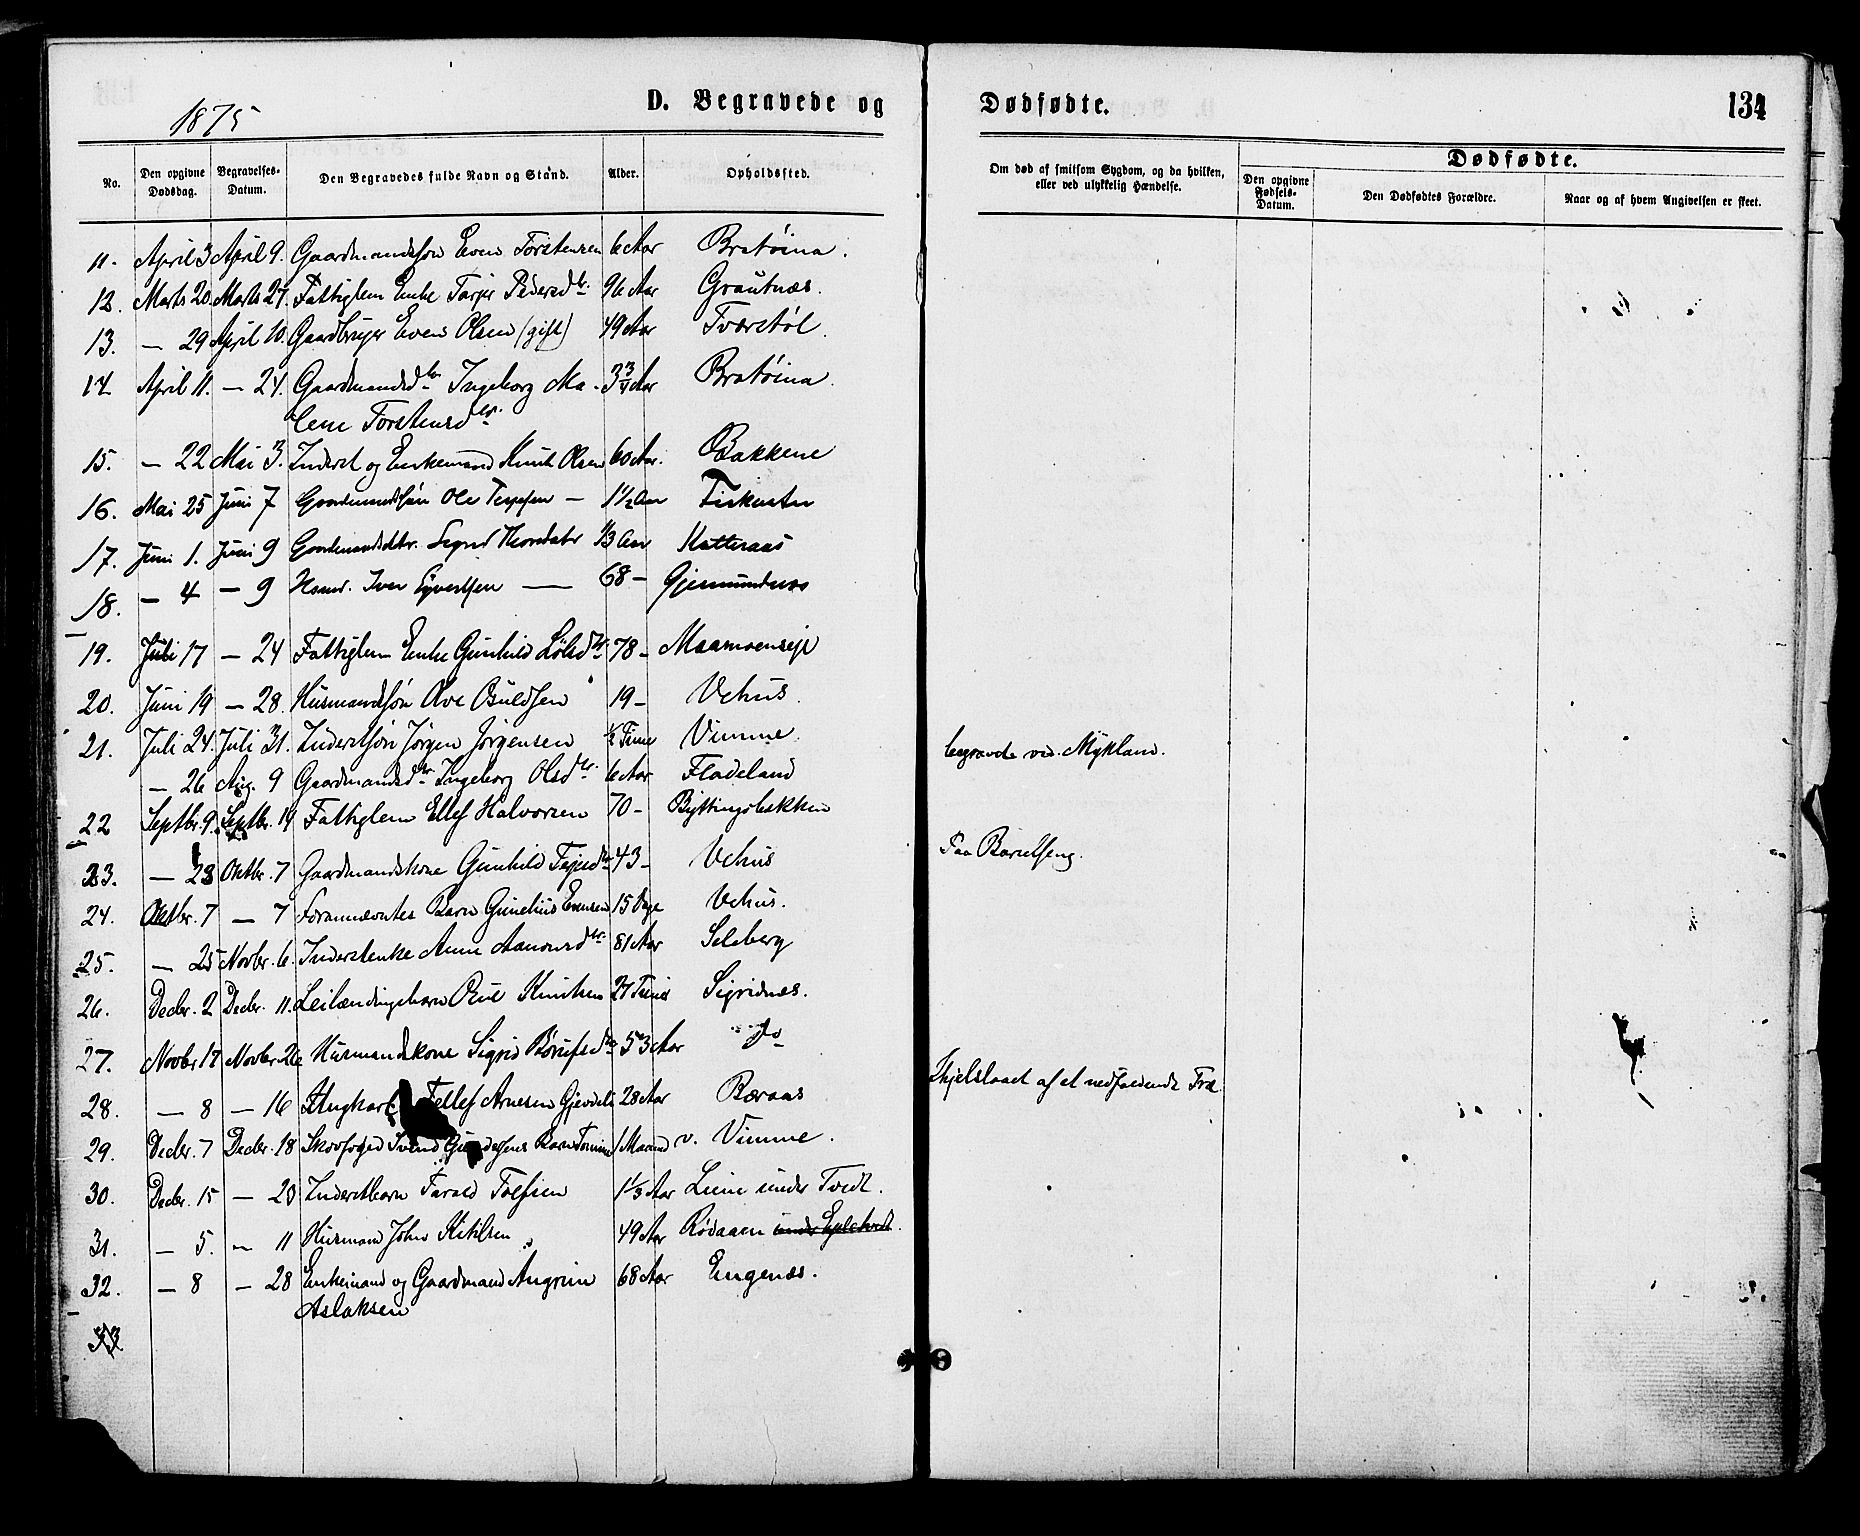 1875
D. Begravede og Dødfødte. 134
No. Den opgivne Dødsdag. Begravelses-Datum. Den Begravedes fulde Navn og Stand. Alder. Opholdssted. Om død af smitsom Sygdom, og da hvilken, eller ved ulykkelig Hændelse. Dødfødte. Den opgivne Fødsels-Datum. Den Dødfødtes Forældre. Naar og af hvem Angivelsen er skeet.
11. April 3 April 9. Gaardmandssøn Even Torstensen 6 Aar Bratøina.
12. Marts 20. Marts 27. Fattiglem Enke Tarjer Pedersdtr. 96 Aar Grautnæs.
13. — 29 April 10. Gaardbruger Even Olsen (gift) 49 Aar Tværstøl.
14. April 11. — 24. Gaardmandsdtr Ingeborg Ma- 3 3/4 Aar Bratøina.
lene Torstensdtr.
15. — 22 Mai 3. Inderst og Enkemand Knut Olsen 60 Aar. Bakkene
16. Mai 25 Juni 7 Gaardmandssøn Ole — 1 1/2 Aar
17. Juni 1. Juni 9 Gaardmandsdtr. Sigrid 1/3 Aar Katteraas
18. — 4 — 9 Husmd. Iver — 68 — Gjermundnæs
19. Juli 17 — 24 Fattiglem Enke Gunhild 78 — Maamoenseje
20. Juni 19 — 28. Husmandssøn Ove 19 — Vehus.
21. Juli 24. Juli 31. Inderstsøn Jørgen Jørgensen 1/2 Time Vimme.
— 26 Aug. 9 Gaardmandsdtr Ingeborg Olsdtr. 6 Aar Fladeland begravet ved Mykland.
22 Septbr. 9. Septbr. 19 Fattiglem Ellef Halvorsen 70 — Byttingsbakken
23. — 23 Oktbr. 7 Gaardmandskone Gunhild 43 — Vehus Paa Barselseng.
24. Oktbr. 7 — 7 Forannævntes Barn Gunelius Evensen 15 Dage Vehus.
25. — 25 Novbr. 6. Inderstenke Anne Aanonsdtr. 81 Aar Seleberg
26. Decbr. 2 Decbr. 11. Leilændingsbarn Knutsen 27 Timer Sigridnæs.
27. Novbr 17 Novbr. 26 Husmandskone Sigrid 53 Aar Do
28. — 8 — 16 Ungkarl Tellef Arnesen Gjevdeli 28 Aar Bæraas Ihjelslaaet af et nedfaldende Træ
29. Decbr. 7 Decbr. 18 Skovfoged Svend Barn 1 Maaned v. Vimme.
30. Decbr. 15 — 23 Inderstbarn Tarald Tolfsen 1 1/3 Aar Liene under Tvedt.
31. — 5. — 11 Husmand John Ketilsen 49 Aar Rødaaen under
32. — 8 — 28 Enkemand og Gaardmand Angrim 68 Aar Engenæs.
Aslaksen
33